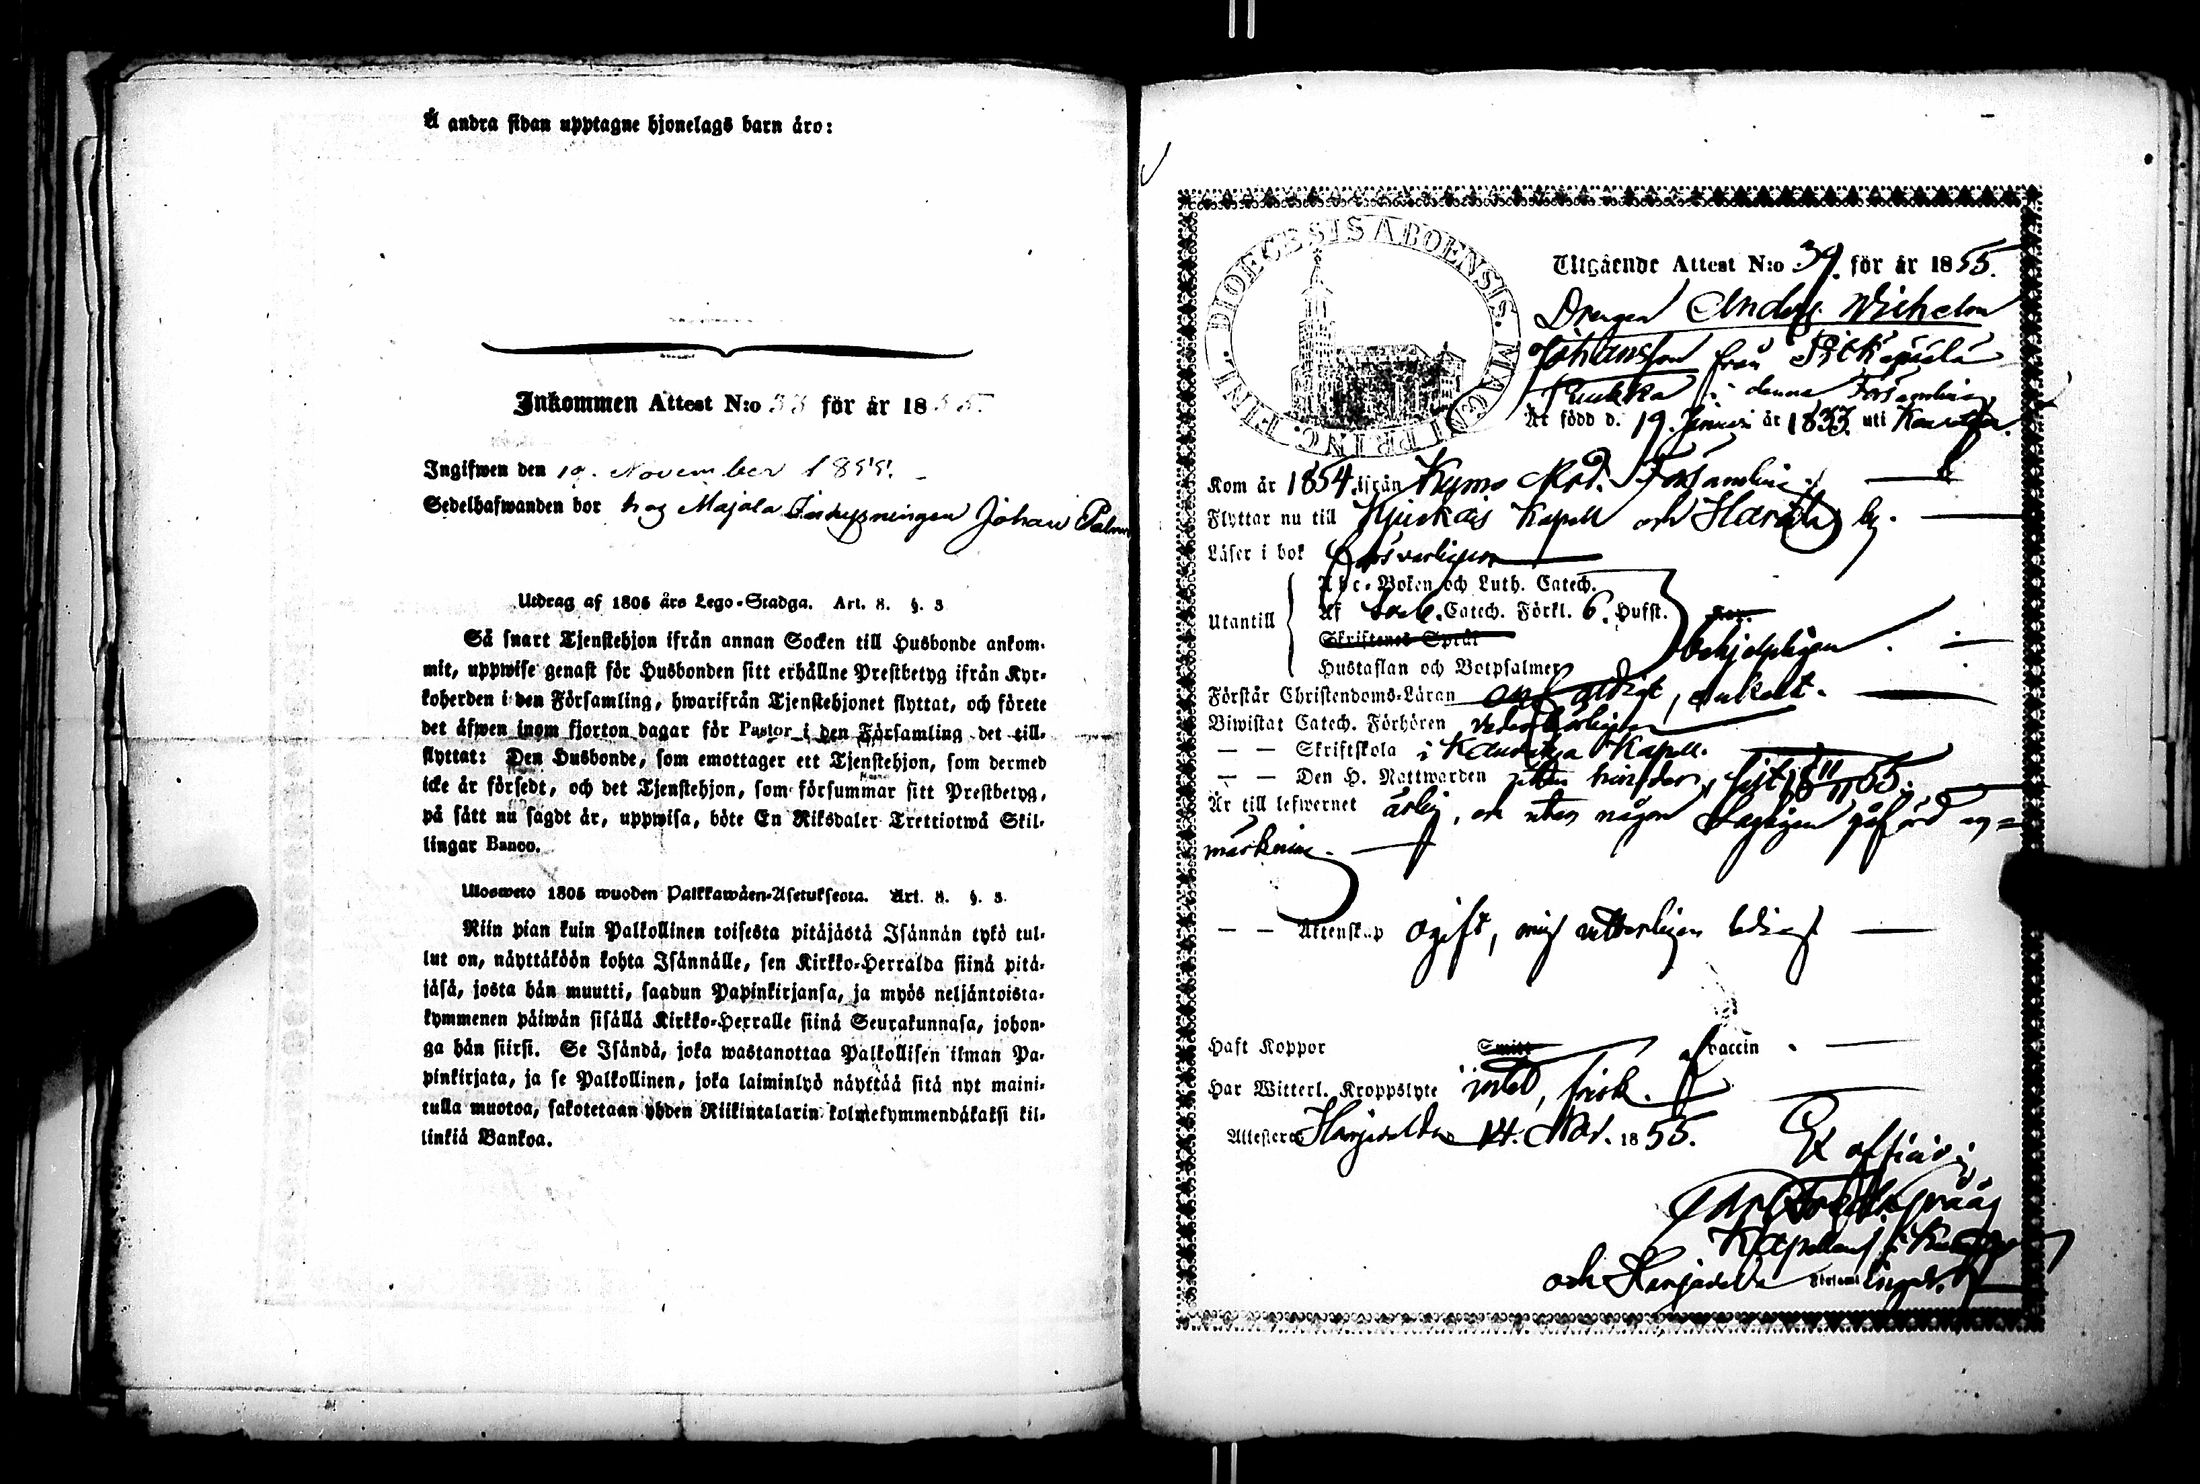 Å andra sidan upptagne hjonelags barn äro:
Inkommen Attest N:o 33 för år 1855.
Ingifwen den 19. November 1855.
Sedelhafwanden bor hos Majala Johan
Utdrag af 1805 års Lego-Stadga. Art. 8. §. 3
Så snart Tjenstehjon ifrån annan Socken till Husbonde ankom-
mit, uppwise genast för Husbonden sitt erhållne Prestbetyg ifrån Kyr-
koherden i den Församling, hwarifrån Tjenstehjonet flyttat, och förete
det äfwen inom fjorton dagar för Pastor i den Församling det till-
flyttat: Den Husbonde, som emottager ett Tjenstehjon, som dermed
icke är försedt, och det Tjenstehjon, som försummar sitt Prestbetyg,
på sätt nu sagdt är, uppwisa, böte En Riksdaler Trettiotwå Skil-
lingar Banco.
Ulosweto 1805 wuoden Palkkawäen-Asetuksesta. Art. 8. §. 3.
Niin pian kuin Palkollinen toisesta pitäjästä Isännän tykö tul-
lut on, näyttäköön kohta Isännälle, sen Kirkko-Herralda siinä pitä-
jäsä, josta hän muutti, saadun Papinkirjansa, ja myös neljäntoista-
kymmenen päiwän sisällä Kirkko-Herralle siinä Seurakunnasa, johon-
ga hän siirsi. Se Isändä, joka wastanottaa Palkollisen ilman Pa-
pinkirjata, ja se Palkollinen, joka laiminlyö näyttää sitä nyt maini-
tulla muotoa, sakotetaan yhden Riikintalarin kolmekymmendäkaksi kil-
linkiä Bankoa.
DIOECESIS ABOENSIS. MAGNI PRINC. FINL.
Utgående Attest N:o 39. för år 1855.
Drengen Anders Wilhelm
Johansson från Pitkäpää
i denna Församling
Är född d. 19. Januari år 1833. uti
Kom år 1854. ifrån Kumo Mod. Församling.
Flyttar nu till Kjukais Kapell och Harola by.
Läser i bok försvarligen
Utantill
Abc-Boken och Luth. Catech.
Af Catech. Förkl. 6. Hufst.
Skriftenes Språk
behjelpligen
Hustaflan och Botpsalmer
Förstår Christendoms-Läran enfaldigt, enkelt.
Biwistat Catech. Förhören vederbörligen
— — Skriftskola i Kauvatsa Kapell.
— — Den H. Nattwarden utan hinder, sist 18 11/11 55.
Är till lefwernet ärlig, och utan någon an-
märkning.
— — Äktenskap ogift, mig vitterligen ledig
Haft Koppor Smitt af vaccin.
Har Witterl. Kroppslyte intet, frisk.
Attesteras Harjavalda 14. Nov. 1855.
Ex officio:
Carl
Kapellan i
och Harjavalda